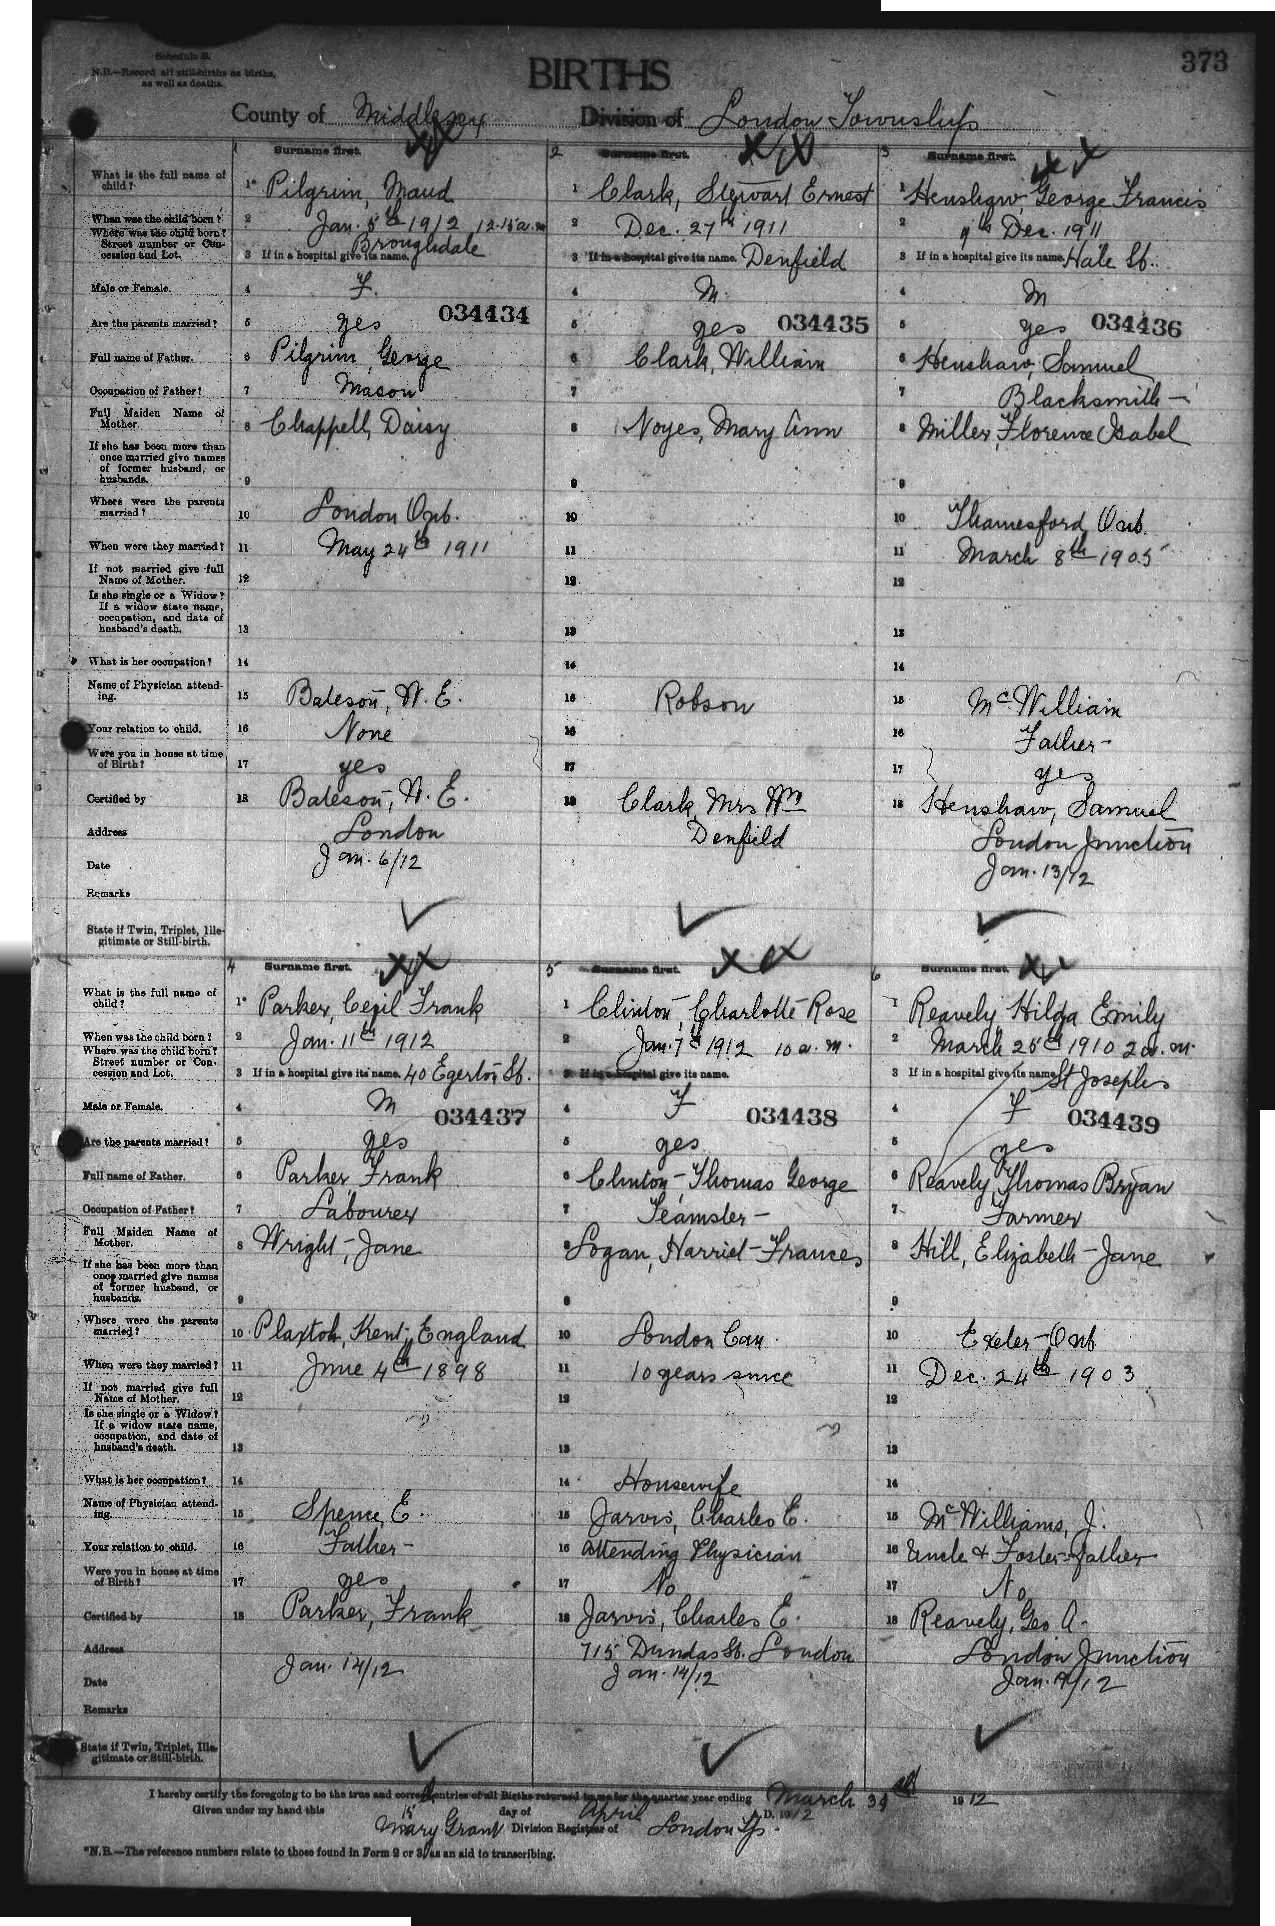 Schedule B.
N.B.—Record all still-births as births, as well as deaths.
373
BIRTHS
County of Middlesex Division of London Township
1 Surname first. 2 Surname first. 3 Surname first.
What is the full name of child? 1* Pilgrim, Maud 1 Clark, Stewart Ernest 1 Henshaw George Francis
When was the child born? 2 Jan. 5th 1912 12.15 a.m 2 Dec. 27th 1911 2 9th Dec. 1911
Where was the child born? Street number or Concession and Lot. 3 If in a hospital give its name. Broughdale 3 If in a hospital give its name. Denfield 3 If in a hospital give its name. Hale St.
Male or Female. 4 F. 4 M. 4 M
034434 034435 034436
Are the parents married? 5 yes 5 yes 5 yes
Full name of Father. 6 Pilgrim, George 6 Clark, William 6 Henshaw, Samuel
Occupation of Father? 7 Mason 7 7 Blacksmith —
Full Maiden Name of Mother. 8 Chappell, Daisy 8 Noyes, Mary Ann 8 Miller, Florence Isabel
If she has been more than once married give names of former husband, or husbands. 9 9 9
Where were the parents married? 10 London Ont. 10 10 Thamesford Ont.
When were they married? 11 May 24th 1911 11 11 March 8th 1905
If not married give full Name of Mother. 12 12 12
Is she single or a Widow? If a widow state name, occupation, and date of husband's death. 13 13 13
What is her occupation? 14 14 14
Name of Physician attending. 15 Bateson, W. E. 15 Robson 15 McWilliam
Your relation to child. 16 None 16 16 Father -
Were you in house at time of Birth? 17 yes 17 17 yes
Certified by 18 Bateson, W. E. 18 Clark, Mrs Wm 18 Henshaw, Samuel
Address London Denfield London Junction
Date Jan. 6/12 Jan. 13/12
Remarks
State if Twin, Triplet, Illegitimate or Still-birth.
4 Surname first. 5 Surname first. 6 Surname first.
What is the full name of child? 1* Parker, Cecil Frank 1 Clinton, Charlotte Rose 1 Reavely Hilda Emily
When was the child born? 2 Jan. 11th 1912 2 Jan. 7th 1912 10 a.m. 2 March 25th 1910 2 a.m.
Where was the child born? Street number or Concession and Lot. 3 If in a hospital give its name. 40 Egerton St. 3 If in a hospital give its name. 3 If in a hospital give its name St Josephs
Male or Female. 4 M 4 F 4 F
034437 034438 034439
Are the parents married? 5 yes 5 yes 5 yes
Full name of Father. 6 Parker Frank 6 Clinton - Thomas George 6 Reavely, Thomas Bryan
Occupation of Father? 7 Labourer 7 Teamster - 7 Farmer
Full Maiden Name of Mother. 8 Wright - Jane 8 Logan, Harriet - Frances 8 Hill, Elizabeth - Jane
If she has been more than once married give names of former husband, or husbands. 9 9 9
Where were the parents married? 10 Kent, England 10 London Can. 10 Exeter - Ont
When were they married? 11 June 4th 1898 11 10 years since 11 Dec. 24th 1903
If not married give full Name of Mother. 12 12 12
Is she single or a Widow? If a widow state name, occupation, and date of husband's death. 13 13 13
What is her occupation? 14 14 Housewife 14
Name of Physician attending. 15 Spence, E. 15 Jarvis, Charles E. 15 McWilliams, J.
Your relation to child. 16 Father - 16 Attending Physician 16 Uncle & Foster-father
Were you in house at time of Birth? 17 yes 17 No 17 No
Certified by 18 Parker, Frank 18 Jarvis, Charles E. 18 Reavely, Geo A.
Address 715 Dundas St. London London Junction
Date Jan. 14/12 Jan. 14/12 Jan. /12
Remarks
State if Twin, Triplet, Illegitimate or Still-birth.
I hereby certify the foregoing to be the true and correct entries of all Births returned to me for the quarter year ending March 1912
Given under my hand this 15 day of April A.D. 1912
Mary Grant Division Registrar of London Tp.
*N.B.—The reference numbers relate to those found in Form 2 or 3, as an aid to transcribing.